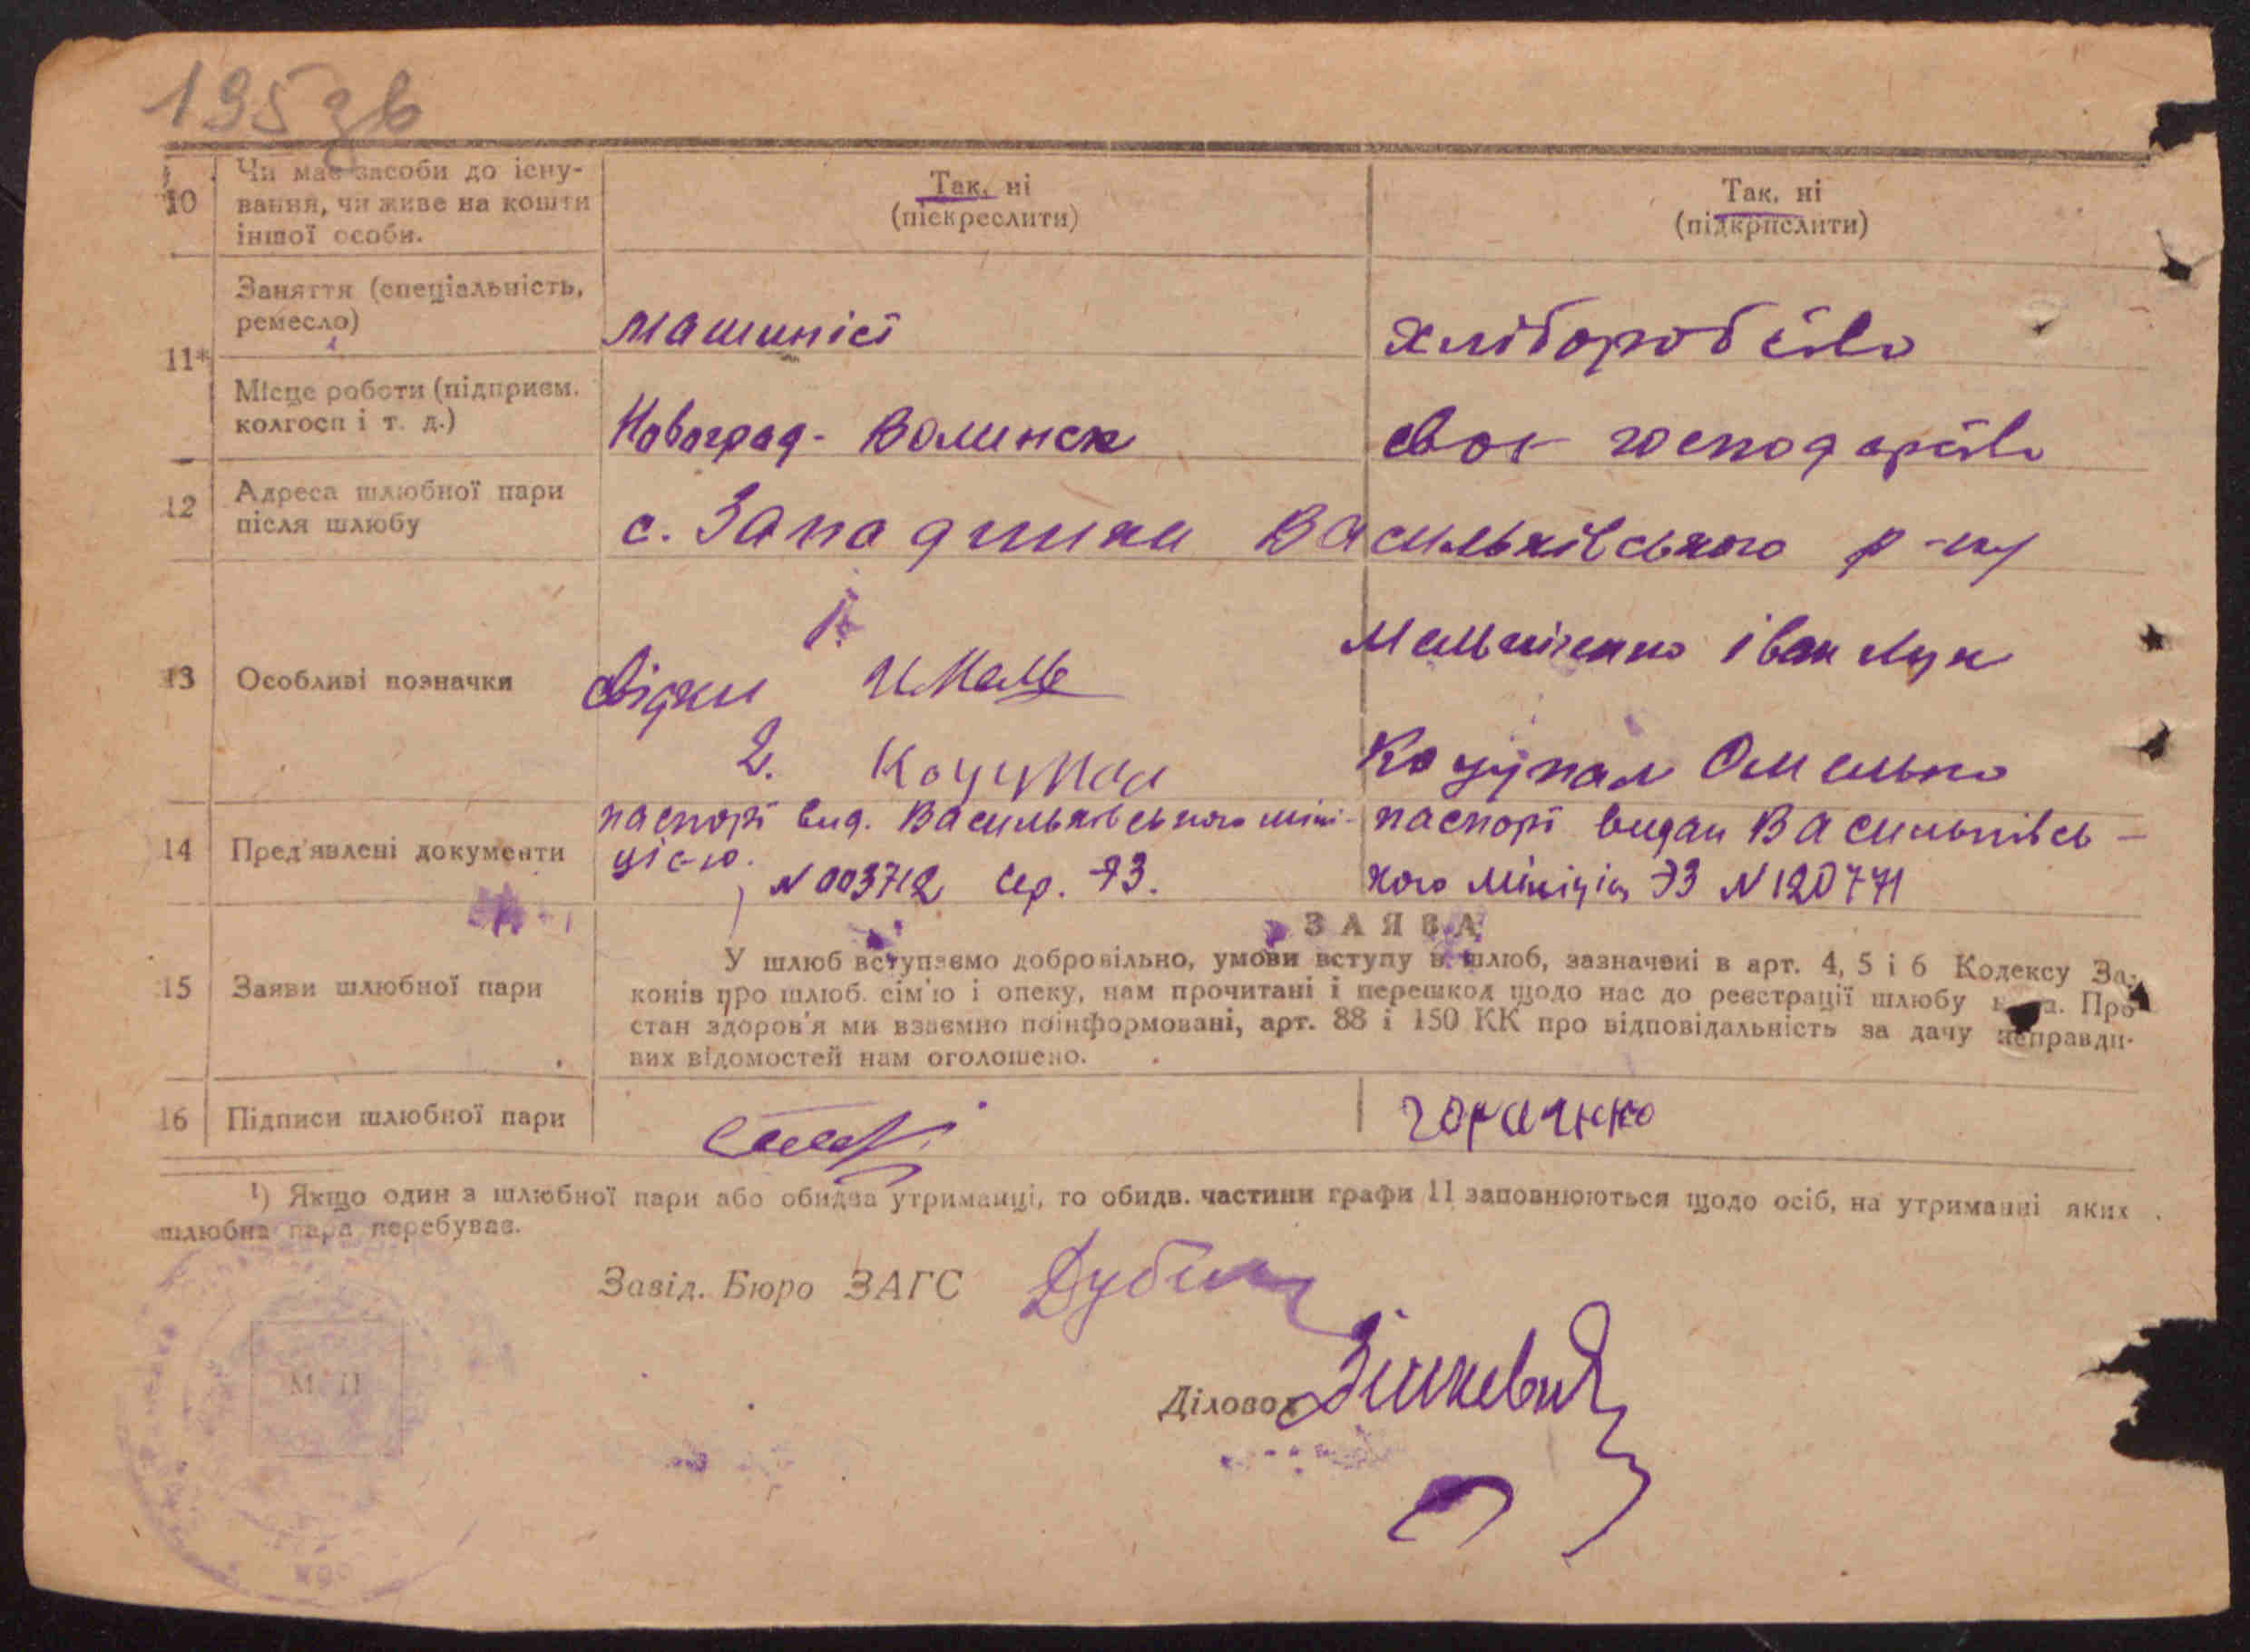 195 зв
10 Чи має засоби до існу-
вання, чи живе на кошти
іншої особи.
Так, ні
(піскреслити)
Так, ні
(підкрислити)
11*
Заняття (спеціальність,
ремесло)
машиніст
хліборобство
Місце роботи (підприєм.
колгосп і т. д.)
Новоград-Волинськ
своє господарство
12 Адреса шлюбної пари
після шлюбу
с. Западинка Васильківського р-ну
13 Особливі позначки
1.
свідки
Мельниченко Іван Лук
2. Коцупал
Коцупал Омелько
14 Пред'явлені документи
паспорт вид. Васильківською мілі-
цією.
N 003712 сер. ЯЗ.
паспорт видан Васильківсь-
кого Міліція ЭЗ N 120771
15 Заяви шлюбної пари
ЗАЯВА
У шлюб вступаємо добровільно, умови вступу в шлюб, зазначені в арт. 4, 5 і 6 Кодексу За-
конів про шлюб. сім'ю і опеку, нам прочитані і перешкод щодо нас до реєстрації шлюбу нема. Про
стан здоров'я ми взаємно поінформовані, арт. 88 і 150 КК про відповідальність за дачу неправди-
вих відомостей нам оголошено.
16 Підписи шлюбної пари
¹) Якщо один з шлюбної пари або обидва утриманці, то обидв. частини графи 11 заповнюються щодо осіб, на утриманні яких
шлюбна пара перебуває.
Завід. Бюро ЗАГС
М П
Діловод